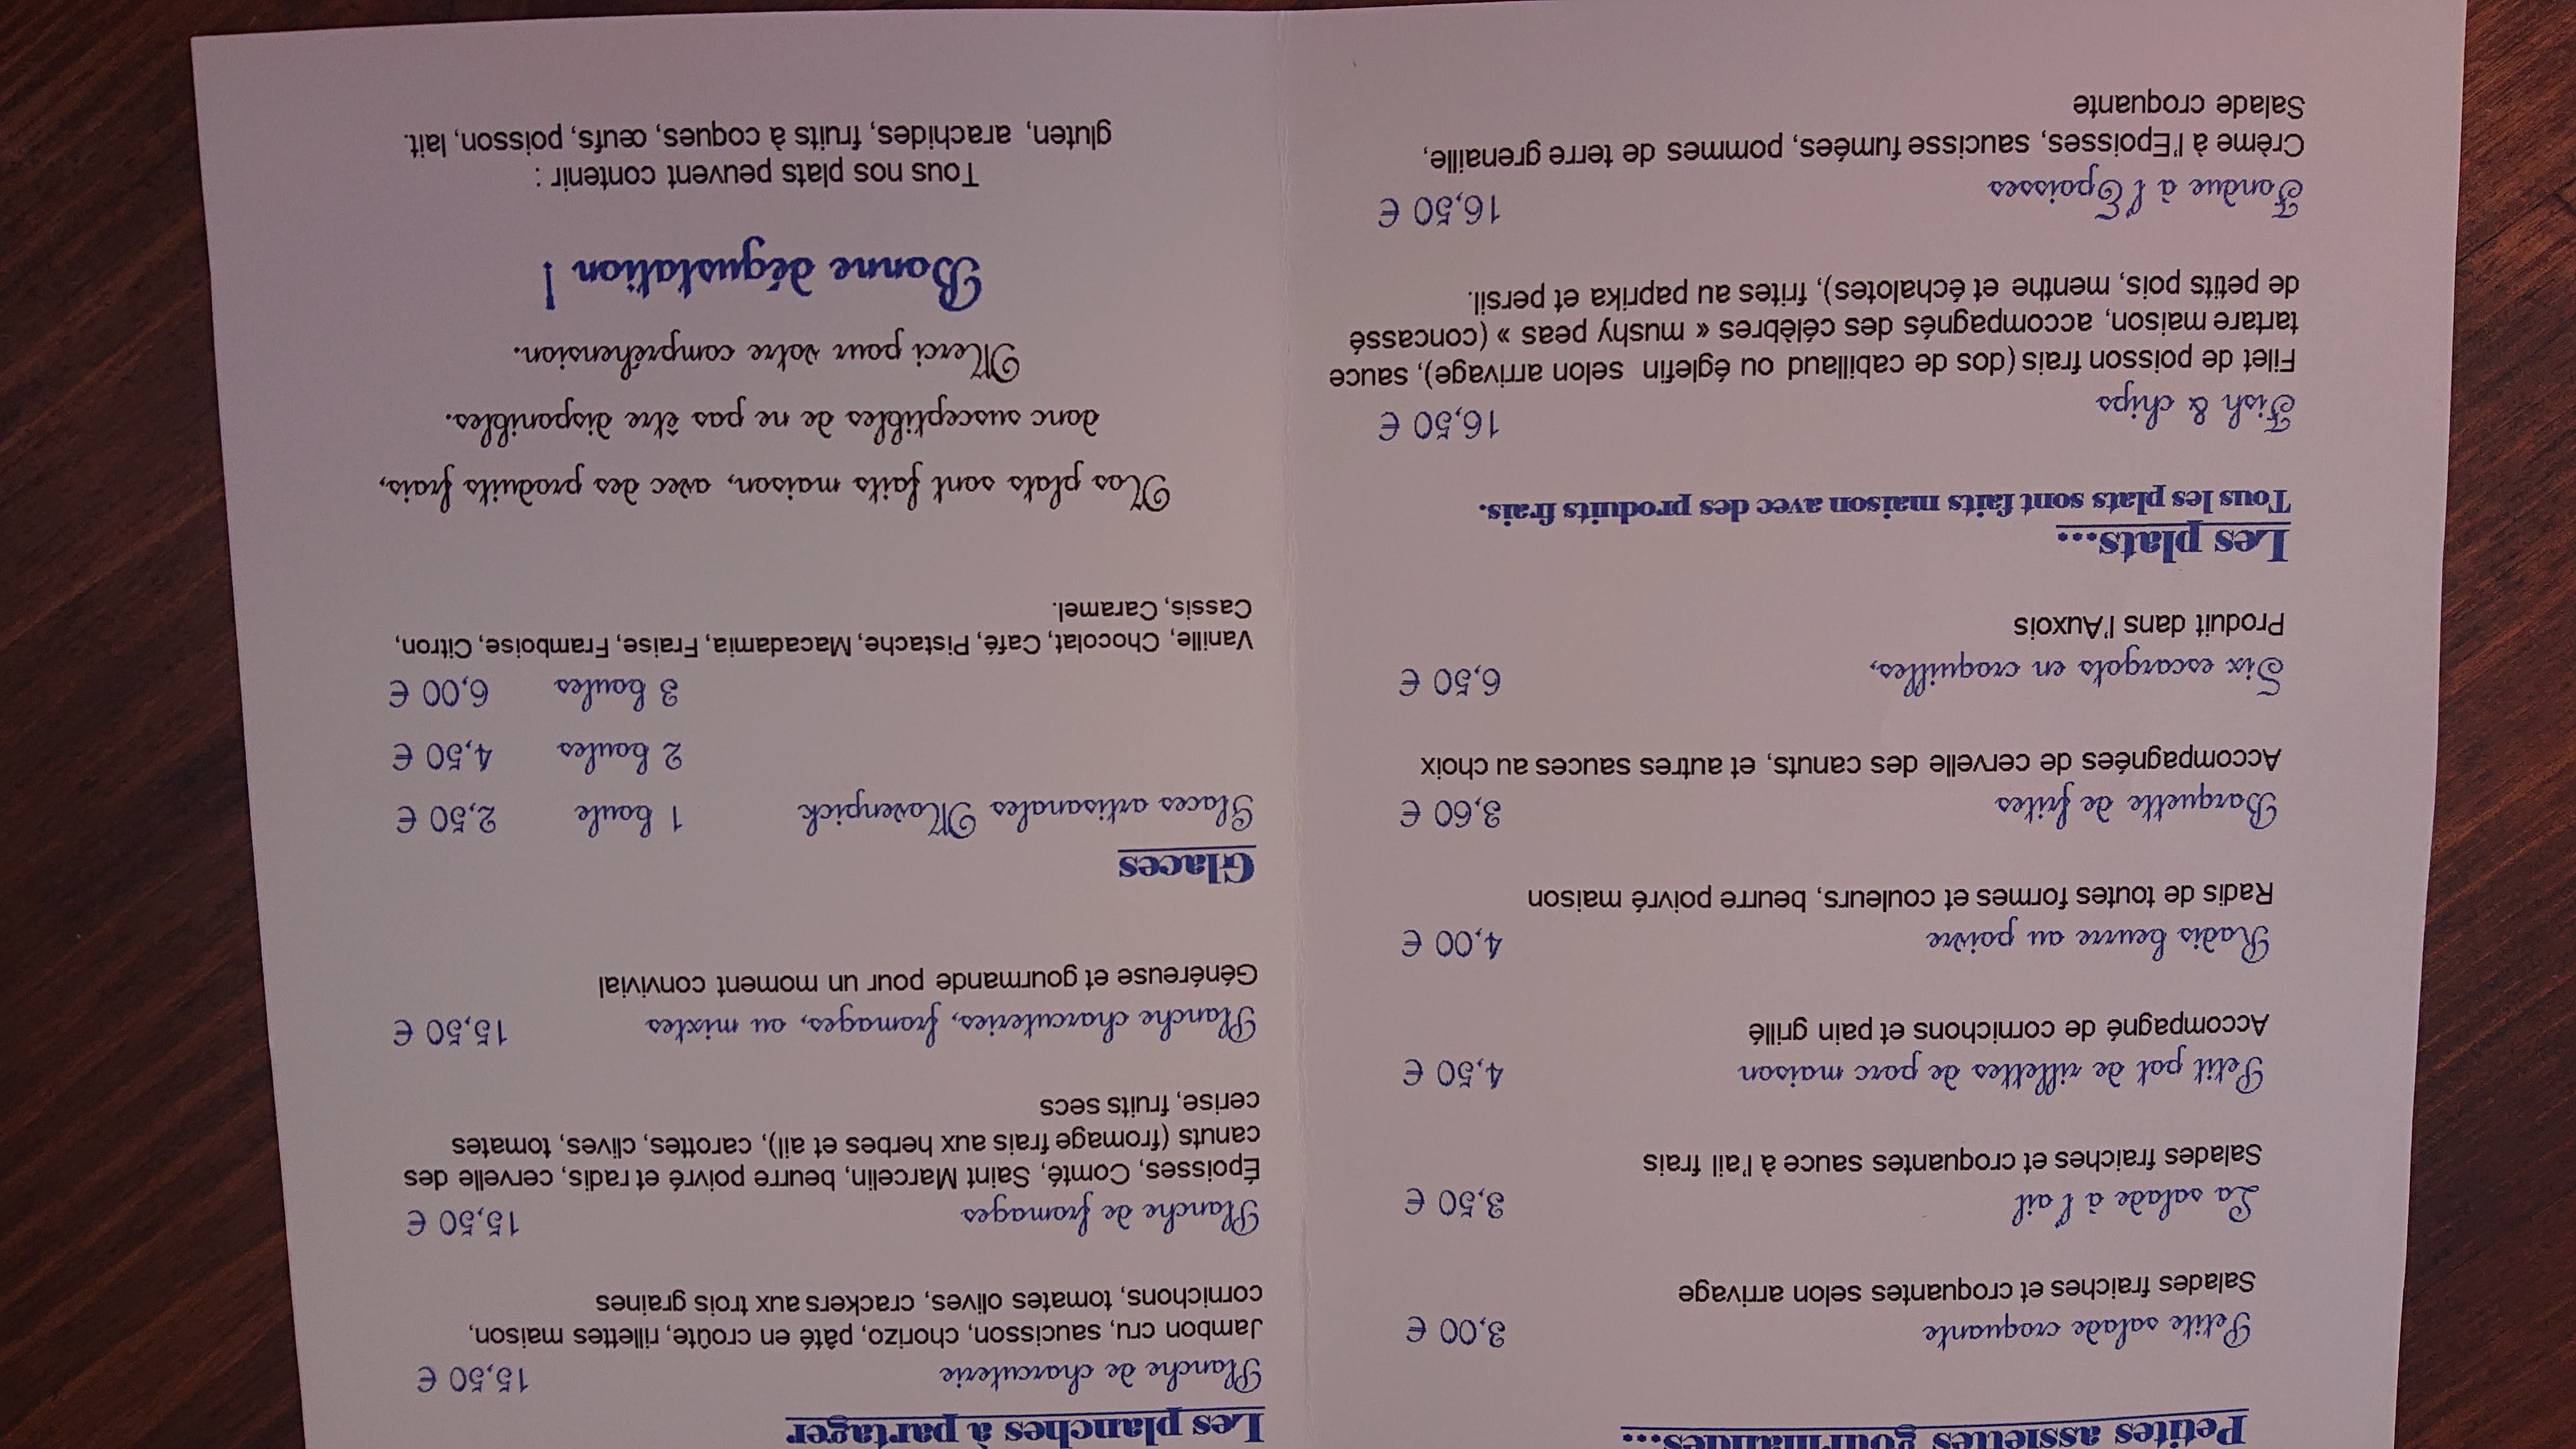 Petites assiettes gourmandes...
Petite salade croquante 3,00 €
Salades fraiches et croquantes selon arrivage
La salade à l'ail 3,50 €
Salades fraiches et croquantes sauce à l'ail frais
Petit pot de rillettes de porc maison 4,50 €
Accompagné de cornichons et pain grillé
Radis beurre au poivre 4,00 €
Radis de toutes formes et couleurs, beurre poivré maison
Barquette de frites 3,60 €
Accompagnées de cervelle des canuts, et autres sauces au choix
Six escargots en croquilles, 6,50 €
Produit dans l'Auxois
Les plats...
Tous les plats sont faits maison avec des produits frais.
Fish & chips 16,50 €
Filet de poisson frais (dos de cabillaud ou églefin selon arrivage), sauce
tartare maison, accompagnés des célèbres « mushy peas » (concassé
de petits pois, menthe et échalotes), frites au paprika et persil.
Fondue à l'Epoisses 16,50 €
Crème à l'Epoisses, saucisse fumées, pommes de terre grenaille,
Salade croquante
Les planches à partager
Planche de charcuterie 15,50 €
Jambon cru, saucisson, chorizo, pâté en croûte, rillettes maison,
cornichons, tomates olives, crackers aux trois graines
Planche de fromages 15,50 €
Époisses, Comté, Saint Marcelin, beurre poivré et radis, cervelle des
canuts (fromage frais aux herbes et ail), carottes, clives, tomates
cerise, fruits secs
Planche charcuteries, fromages, ou mixtes 15,50 €
Généreuse et gourmande pour un moment convivial
Glaces
Glaces artisanales Movenpick 1 boule 2,50 €
2 boules 4,50 €
3 boules 6,00 €
Vanille, Chocolat, Café, Pistache, Macadamia, Fraise, Framboise, Citron,
Cassis, Caramel.
Nos plats sont faits maison, avec des produits frais,
donc susceptibles de ne pas être disponibles.
Merci pour votre compréhension.
Bonne dégustation !
Tous nos plats peuvent contenir :
gluten, arachides, fruits à coques, œufs, poisson, lait.